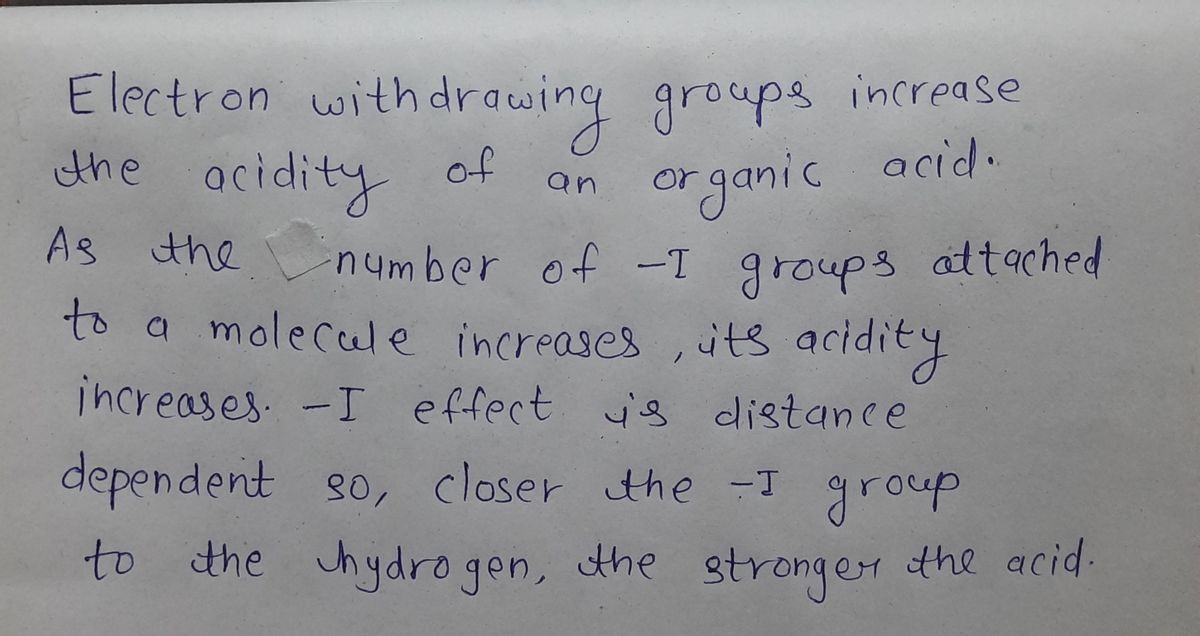 Electron withdrawing groups increase
the acidity of an organic acid.
As the number of -I groups attached
to a molecule increases, its acidity
increases. -I effect is distance
dependent so, closer the -I group
to the hydrogen, the stronger the acid.